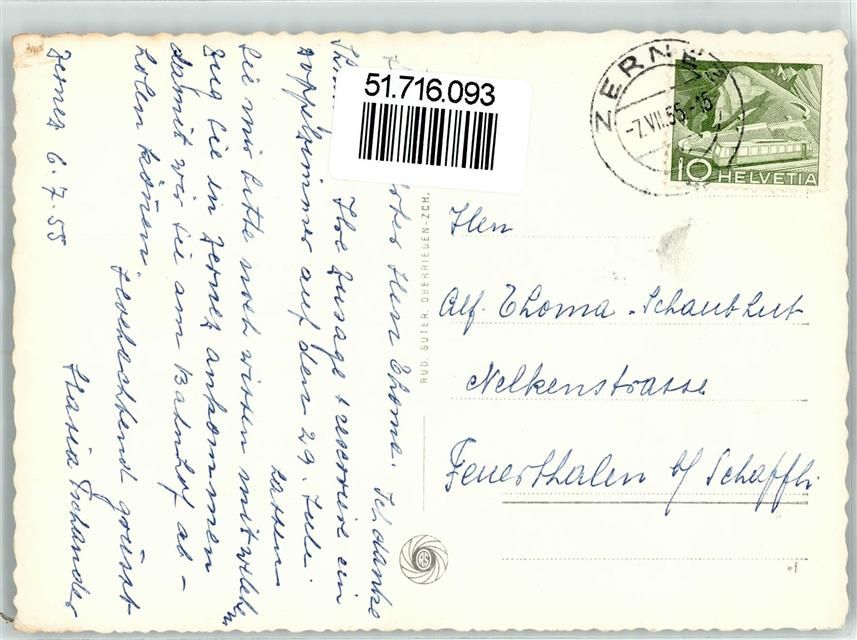 51.716.093
ZERNEZ
-7.VII.55-15
10 HELVETIA
Zernez 6.7.55
Herr Thoma. Ich danke
Ihre Zusage + reserviere ein
Doppelzimmer auf den 29. Juli
lassen
Sie mir bitte noch wissen mit welch
Zug Sie in Zernez ankommen
damit wir Sie am Bahnhof ab-
holen können.
Hochachtend grüsst
Maria Tschander
RUD. SUTER, OBERRIEDEN-ZCH.
RS
Herrn
Alf. Thoma-Schaub Lut
Nelkenstrasse
Feuerthalen b/ Schaffh.
ef